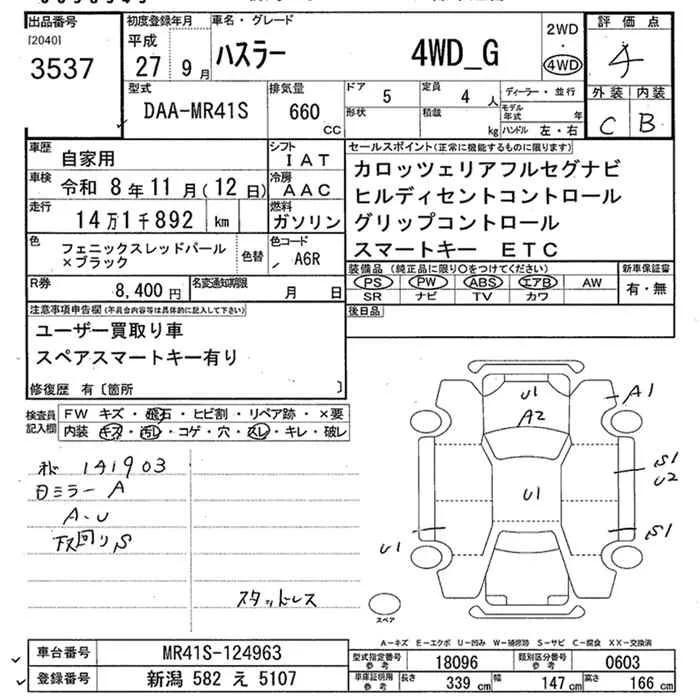 出品番号 初度登録年月 車名・グレード 2WD 評価点
[2040] 平成 ハスラー 4WD_G ・
3537 27年 9月 4WD 4
型式 排気量 ドア 5 定員 4人 ディーラー・並行 外装 内装
DAA-MR41S 660cc 形状 積載 kg モデル年式 年 C B
ハンドル 左・右
車歴 自家用 シフト IAT セールスポイント(正常に機能するものに限ります)
車検 令和 8年11月(12日) 冷房 AAC カロッツェリアフルセグナビ
走行 14万1千892 km 燃料 ガソリン ヒルディセントコントロール
グリップコントロール
色 フェニックスレッドパール×ブラック 色替 色コード A6R スマートキー ETC
装備品(純正品に限り○をつけてください) 新車保証書
R券 8,400円 名変通知期限 月 日 PS PW ABS エアB AW 有・無
SR ナビ TV カワ
注意事項申告欄(不具合内容等は具体的に記入して下さい) 後日品
ユーザー買取り車
スペアスマートキー有り
修復歴 有〔箇所 〕
検査員記入欄 FW キズ・飛石・ヒビ割・リペア跡・×要
内装 キズ・汚レ・コゲ・穴・スレ・キレ・破レ
U1 A1
A2
141903
日ミラー A S1
U2
A・U U1
下回りS S1
U1
スタッドレス
スペア
A-キズ E-エクボ U-凹み W-補修跡 S-サビ C-腐食 XX-交換済
車台番号 MR41S-124963 型式指定番号参考 18096 類別区分番号参考 0603
登録番号 新潟 582 え 5107 車庫証明用参考 長さ 339cm 幅 147cm 高さ 166cm